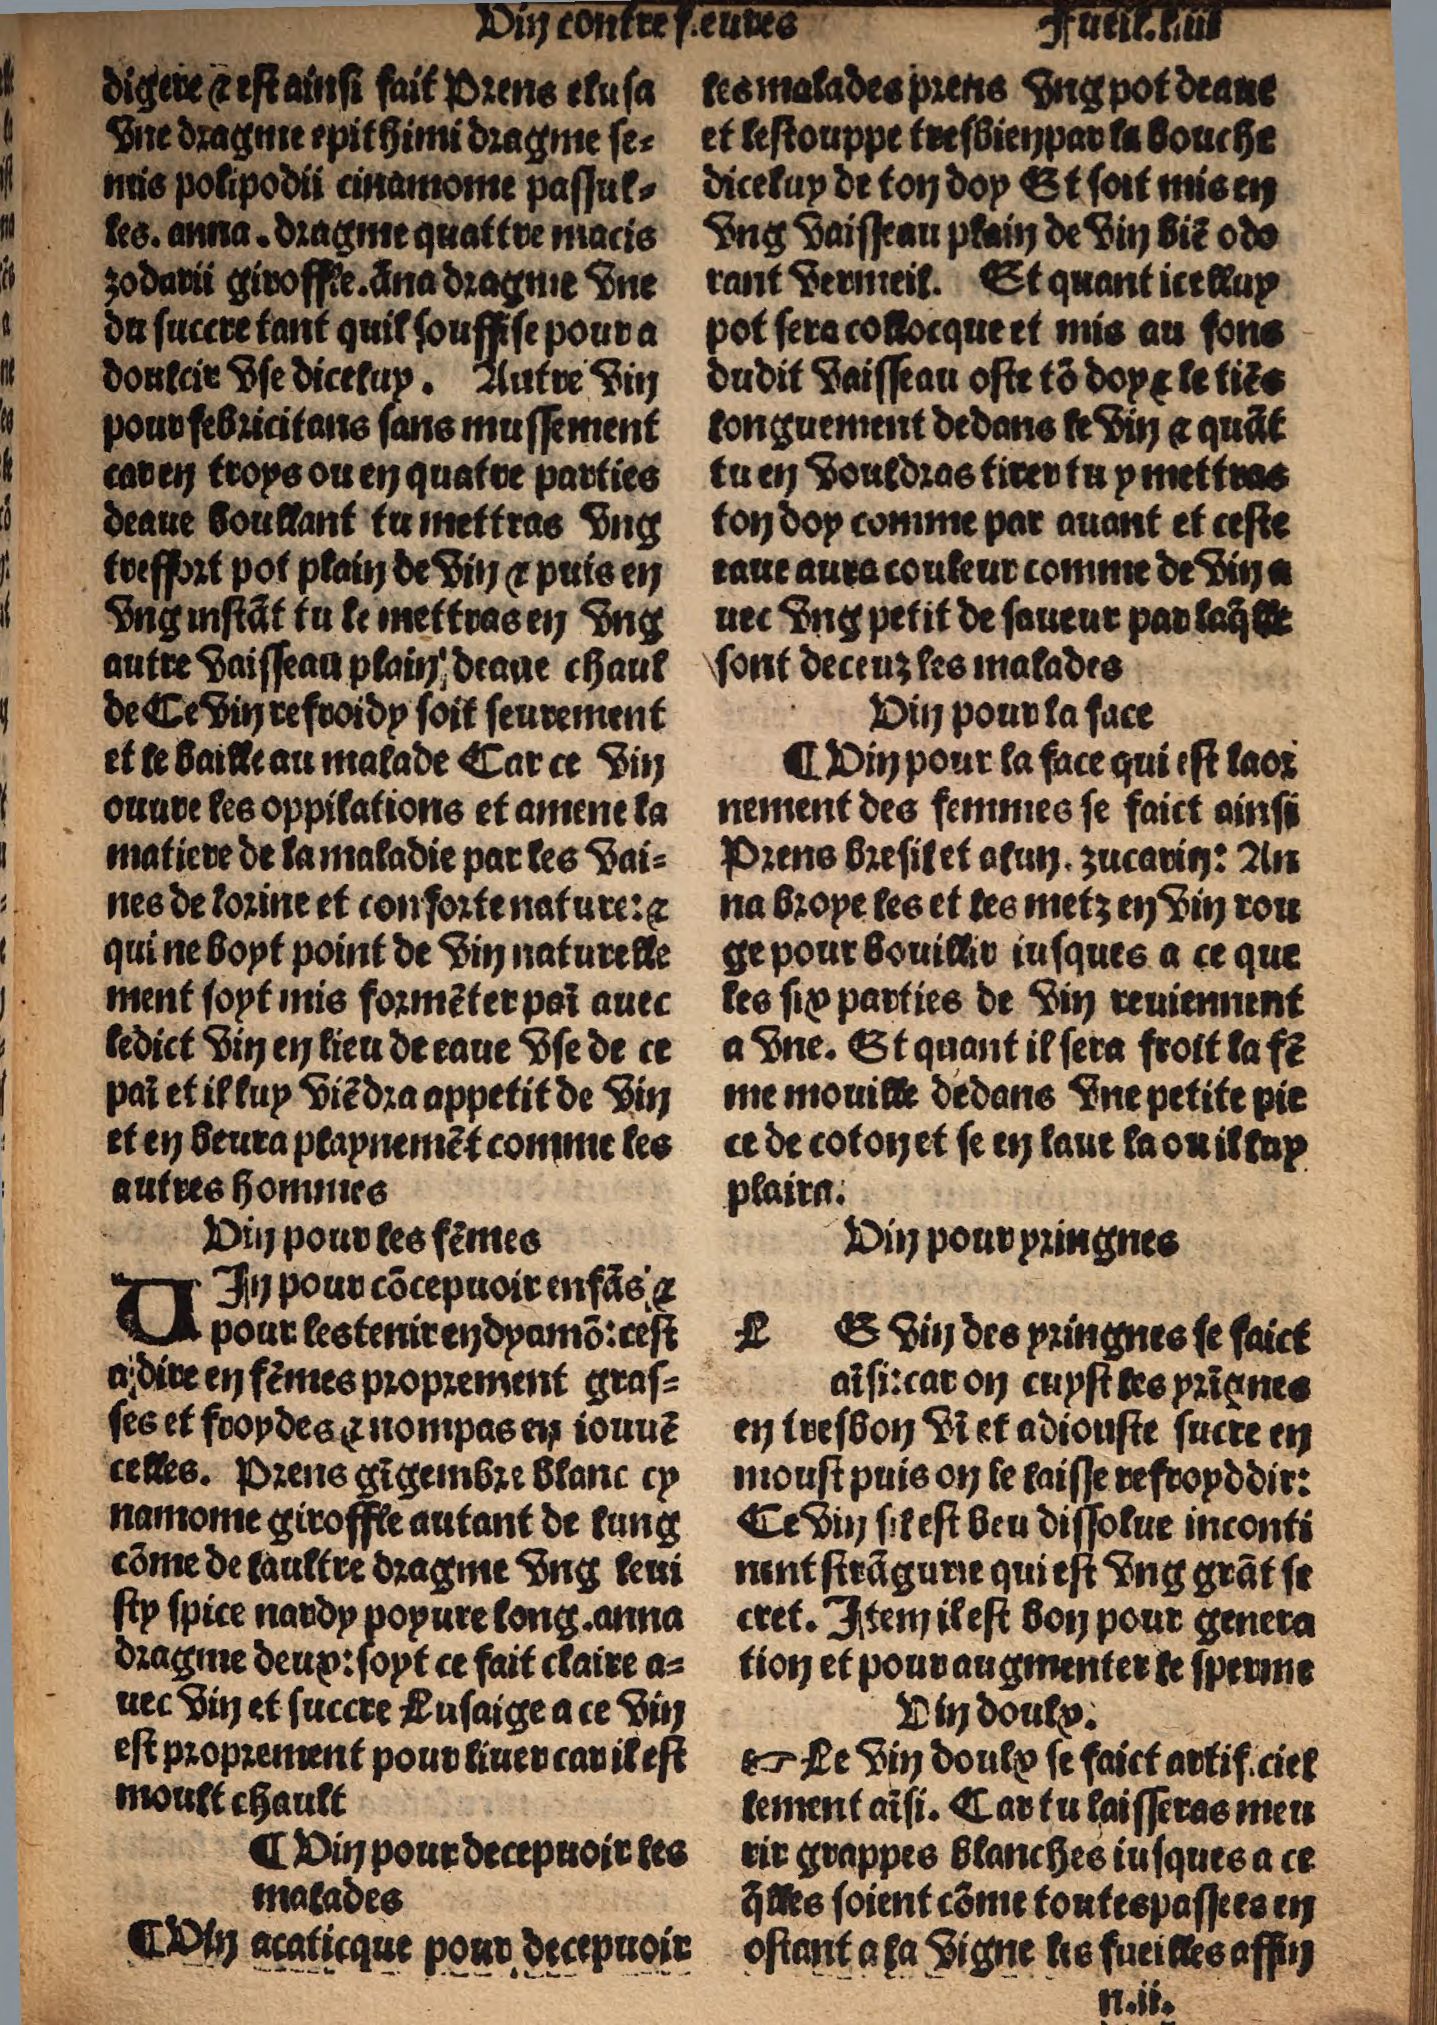 Vin contre f.eures
Fueil.liii
digere & est ainsi fait Prens elusa
vne dragme epithimi dragme se-
mis polipodii cinamome passul-
les. anna. dragme quattre macis
zodarii giroffle. āna dragme vne
du succre tant quil souffise pour a
doulcir vse diceluy. Autre vin
pour febricitans sans mussement
car en troys ou en quatre parties
deaue boullant tu mettras vng
treffort pot plain de vin & puis en
vng instāt tu le mettras en vng
autre vaisseau plain deaue chaul
de Ce vin refroidy soit seurement
et le baille au malade Car ce vin
ouure les oppilations et amene la
matiere de la maladie par les vai-
nes de lorine et conforte nature: &
qui ne boyt point de vin naturelle
ment soyt mis formēter pai avec
ledict vin en lieu de eaue vse de ce
paī et il luy viēdra appetit de vin
et en beura playnemēt comme les
autres hommes
Vin pour les fēmes
VIn pour cōcepuoir enfās &
pour les tenir en dyamō: cest
a dire en fēmes proprement gras-
ses et froydes & nompas en iouuē
celles. Prens gīgembre blanc cy
namome giroffle autant de lung
cōme de laultre dragme vng leui
sty spice nardy poyure long. anna
dragme deux: soyt ce fait claire a-
uec vin et succre Lusaige a ce vin
est proprement pour liuer car il est
moult chault
¶ Vin pour decepuoir les
malades
¶ Vin acaticque pour decepuoir
les malades prens vng pot deaue
et lestouppe tresbien par la bouche
diceluy de ton doy Et soit mis en
vng vaisseau plain de vin biē odo
rant vermeil. Et quant icelluy
pot sera collocque et mis au fons
dudit vaisseau oste tō doy & le tiēs
longuement dedans le vin & quāt
tu en vouldras tirer tu y mettras
ton doy comme par auant et ceste
eaue aura couleur comme de vin a
uec vng petit de saueur par laq̄lle
sont deceuz les malades
Vin pour la face
¶ Vin pour la face qui est laor
nement des femmes se faict ainsi
Prens bresil et alun. zucarin: An
na broye les et les metz en vin rou
ge pour bouillir iusques a ce que
les six parties de vin reuiennent
a vne. Et quant il sera froit la fē
me mouille dedans vne petite pie
ce de coton et se en laue la ou il luy
plaira.
Vin pour yringnes
LE vin des yringnes se faict
aīsi: car on cuyst les yrīgnes
en tresbon vī et adiouste sucre en
moust puis on le laisse refroyddir:
Ce vin sil est beu dissolue inconti
nent strāgurie qui est vng grāt se
cret. Item il est bon pour genera
tion et pour augmenter le sperme
Vin doulx.
☞ Le vin doulx se faict artif.ciel
lement aīsi. Car tu laisseras meu
rir grappes blanches iusques a ce
q̄lles soient cōme toutes passees en
ostant a la vigne les fueilles affin
n.ii.